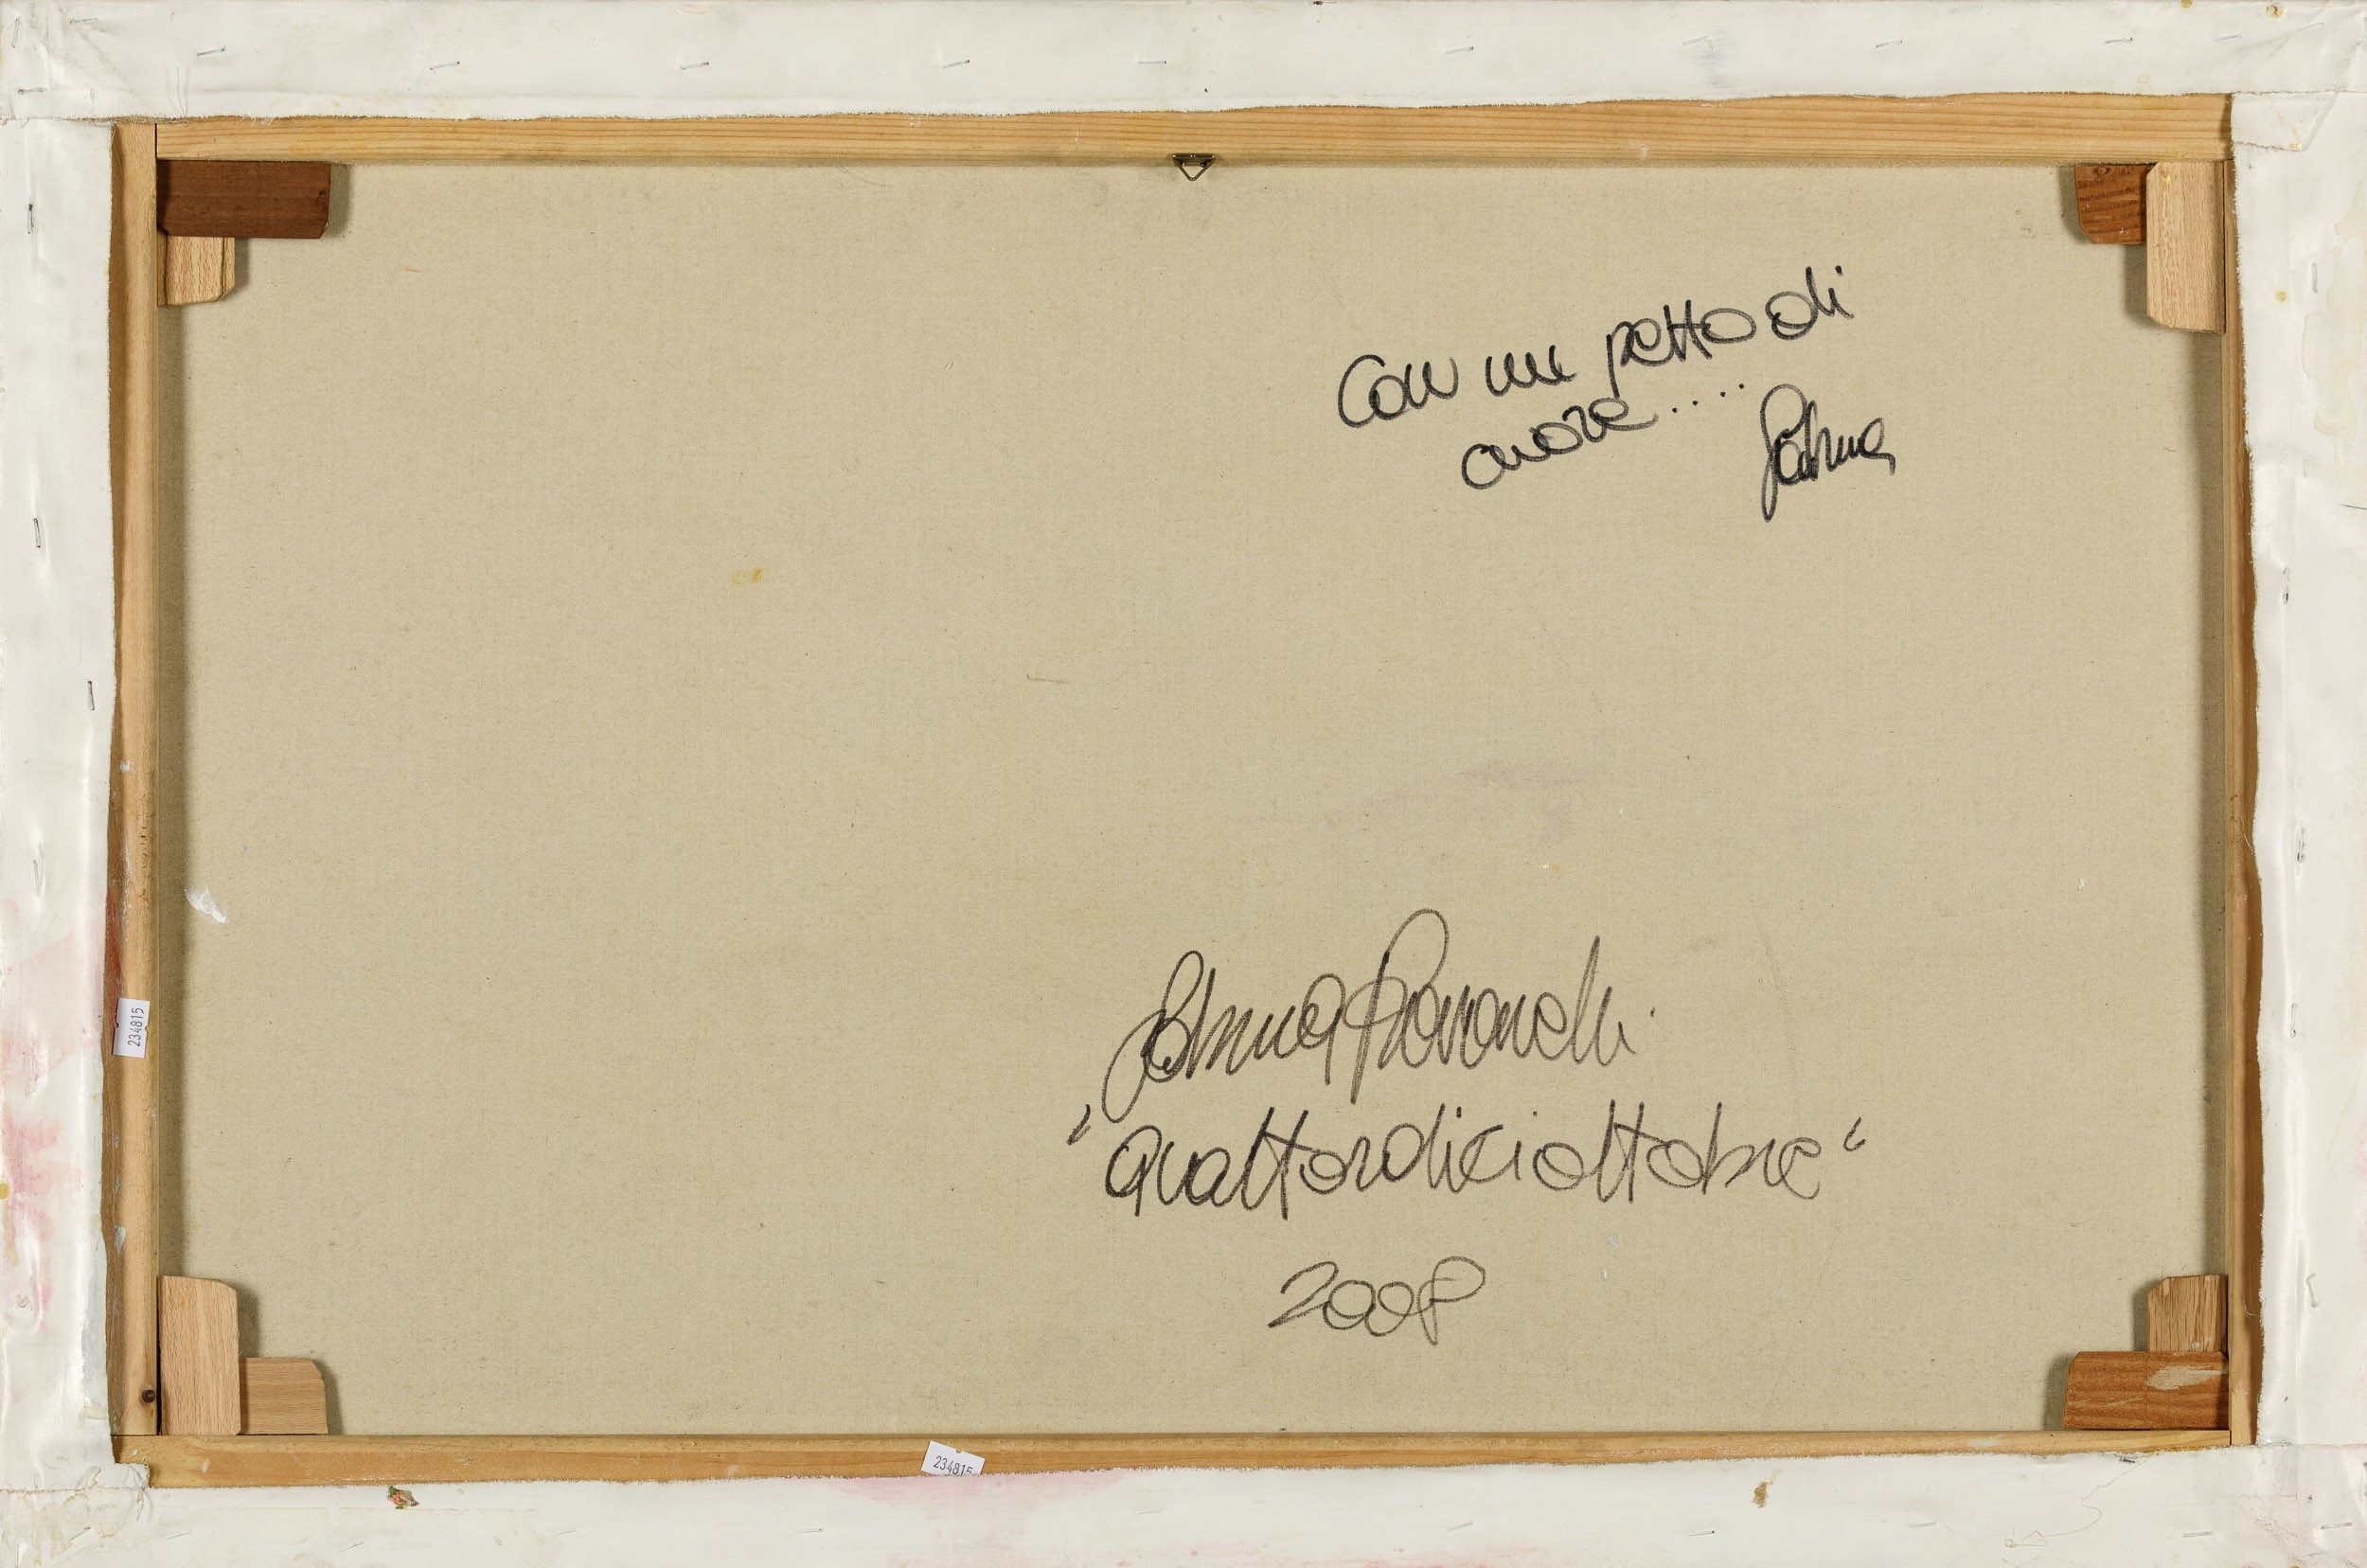 Con un petto di
cuore....
Sabrina
Sabrina Ravanelli
"Quattordiciottobre"
2008
234815
234815